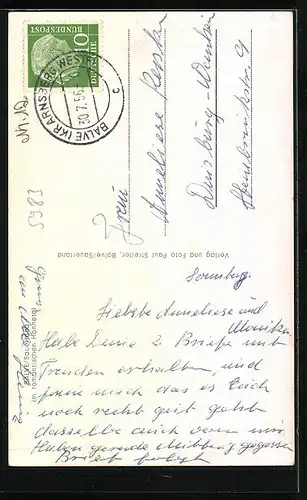 DEUTSCHE
BUNDESPOST
10
BALVE (KR. ARNSBERG WESTF)
30.7.56
c
5983
Frau
Anneliese Kersten
Duisburg-Wanheim
Verlag und Foto Paul Streiter, Balve/Sauerland
im romantischen Hönnetal
Sonntag.
Liebste Anneliese und
Monika
Habe Deine 2 Briefe mit
Freuden erhalten, und
freue mich das es Euch
noch recht gut geht
dasselbe auch von mir
Haben gerade Mittag gegessen
Brief folgt